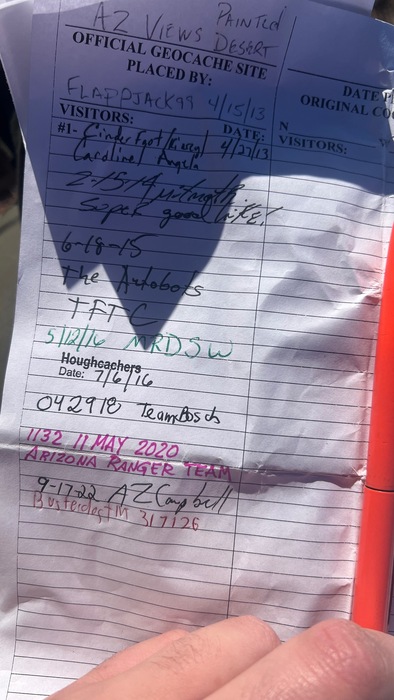 AZ VIEWS PAINTED
DESERT
OFFICIAL GEOCACHE SITE
PLACED BY:
FLAPPJACK99 4/15/13
VISITORS: DATE:
#1- CinderFoot/
Caroline/ Angela 4/27/13
2-15-14
Super good hike!
6-18-15
The Autobots
TFTC
5/12/16 MRDSW
Houghcachers
Date: 7/6/16
042918 TeamBosch
1132 11 MAY 2020
ARIZONA RANGER TEAM
9-17-22 AZCampbell
317126
DATE
ORIGINAL
N
VISITORS: